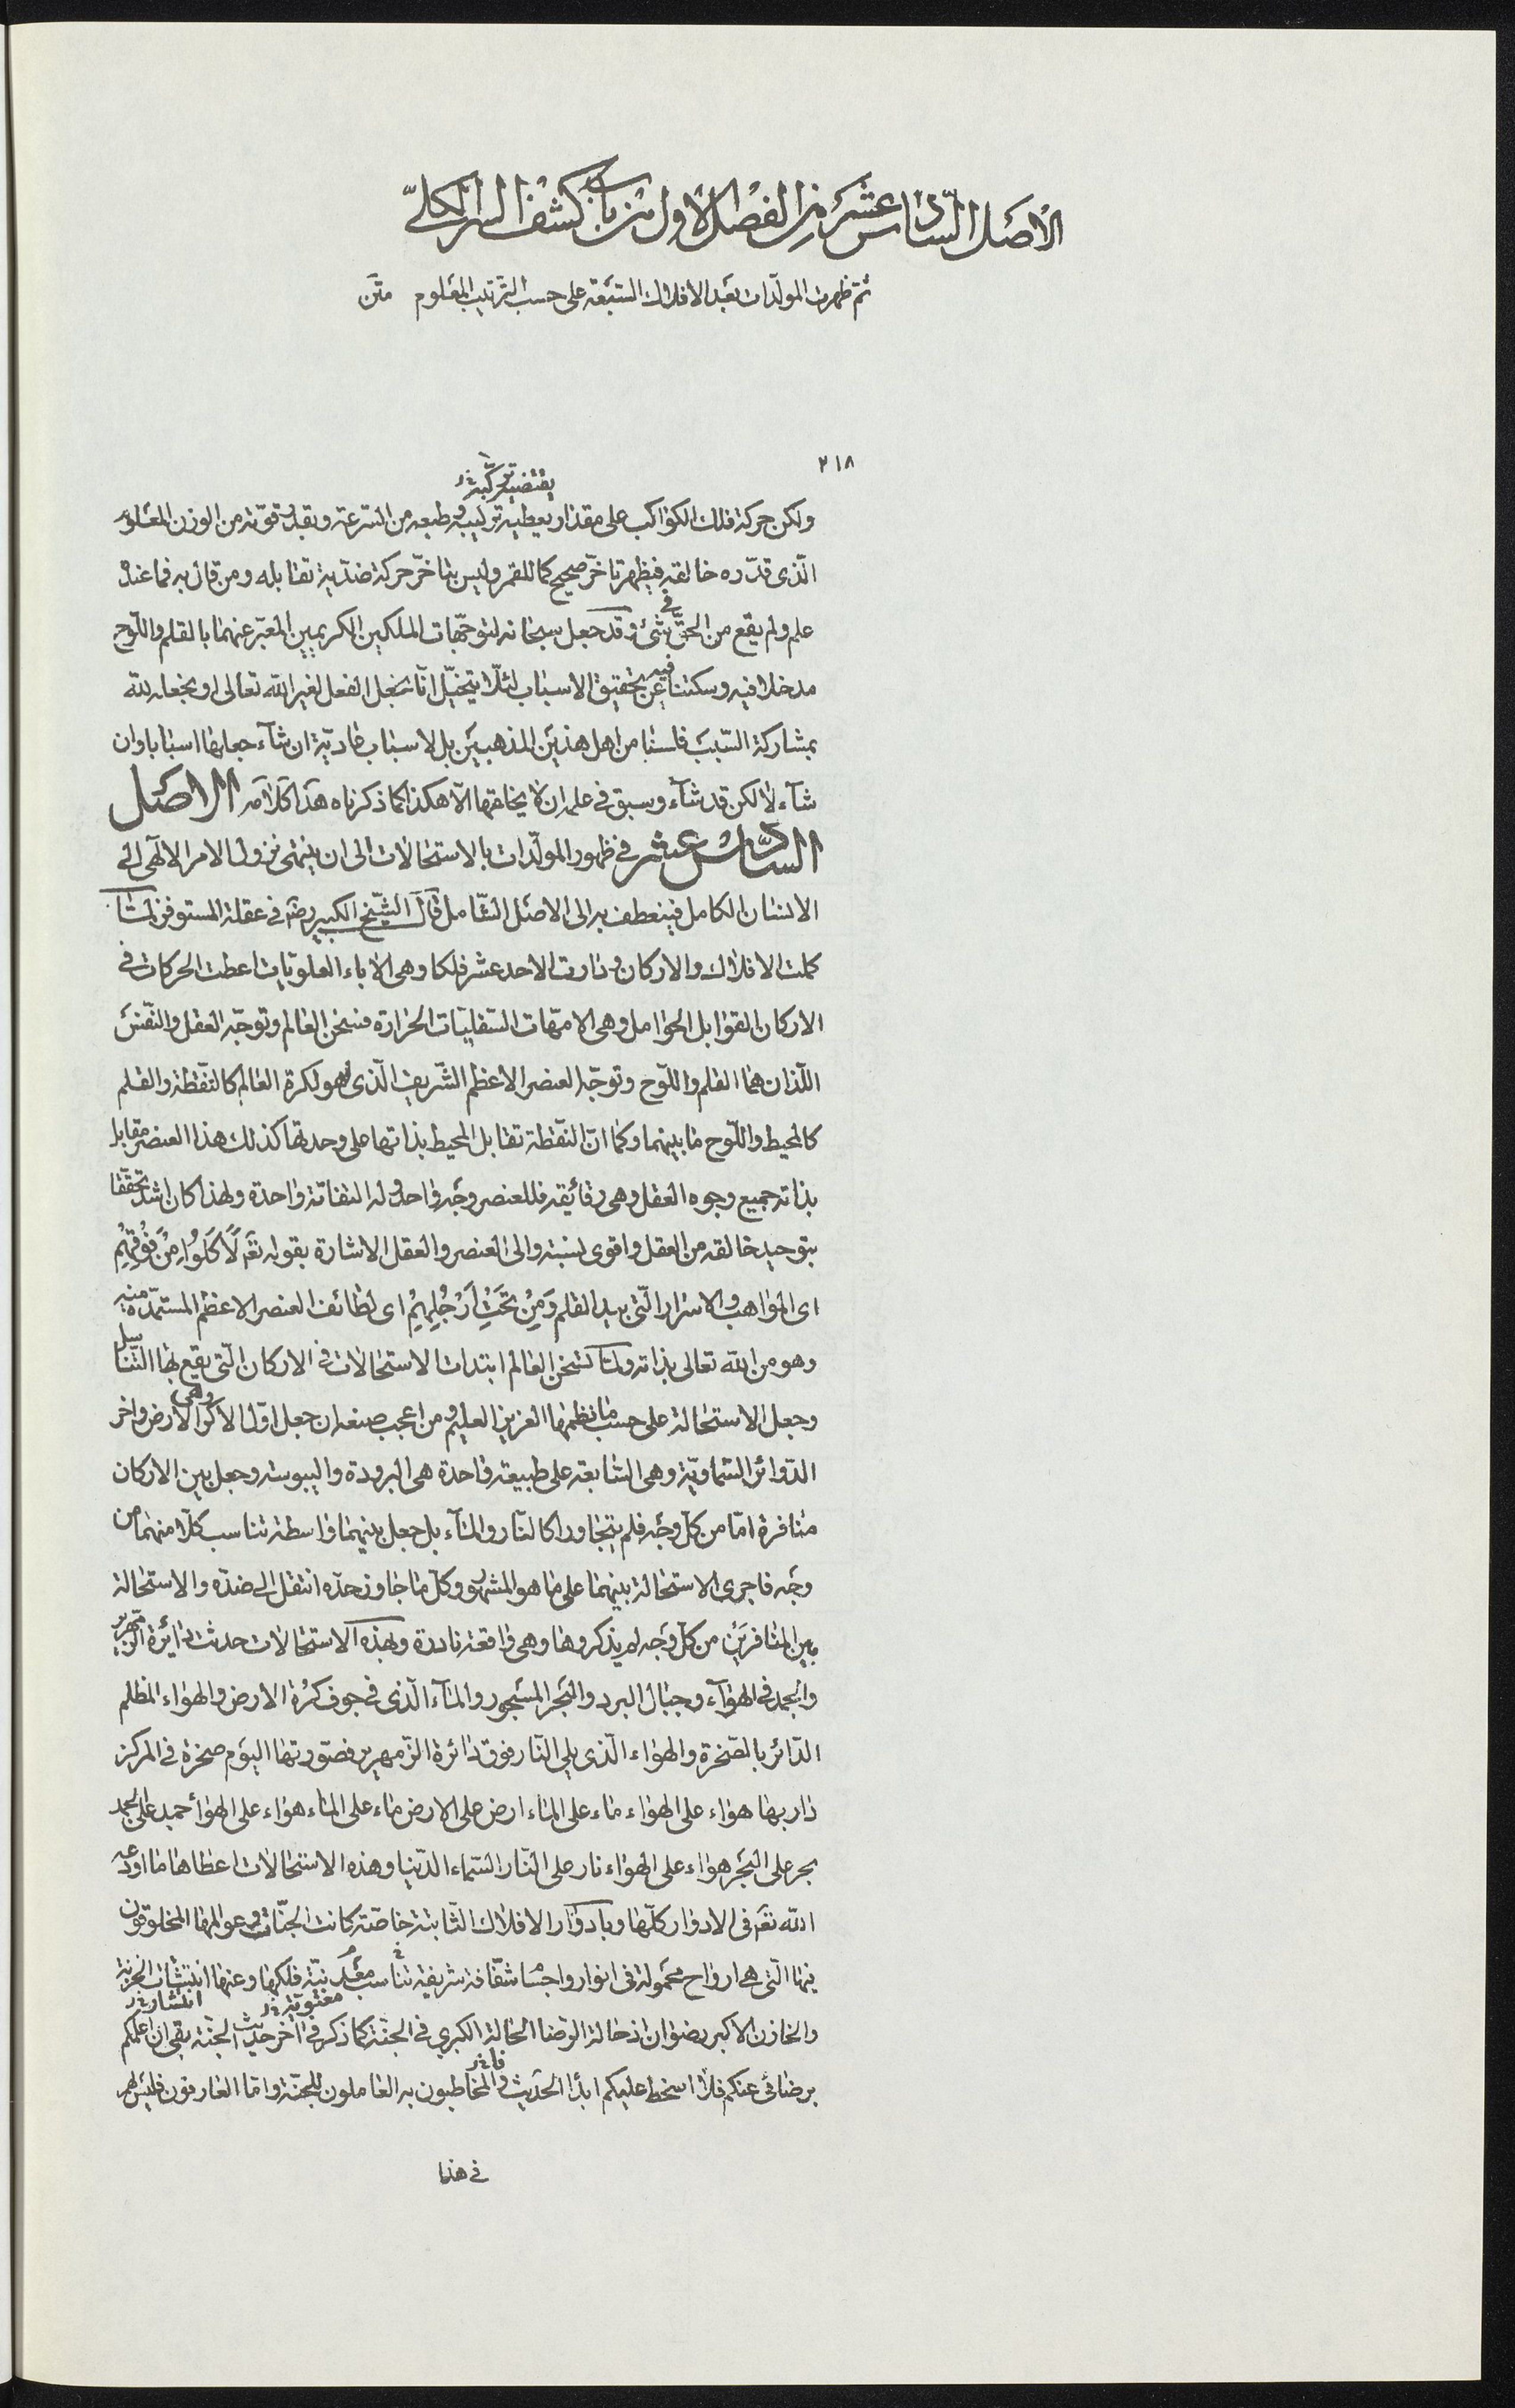 الاصل السادس عشر من الفصل الاول من باب كشف السر الكلي
ثم ظهرت المولّدات بعد الافلاك السبعة على حسب الترتيب المعلوم متن
٢١٨
يقتضيه تركيبه
ولكن حركة فلك الكواكب على مقدار يعطيه تركيبه وطبعه من السرعة وبقدر قوّته من الوزن المعلوم
الّذى قدّره خالقه فيظهر تاخّر صحيح كما للقمر وليس بتاخّر حركة ضدّية تقابله ومن قال به فما عنده
علم ولم يقع من الحقّ فى شئ وقد جعل سبحانه لتوجّهات الملكين الكريمين المعبّر عنهما بالقلم واللّوح
مدخلا فيه وسكتنا فيه عن تحقيق الاسباب لئلّا يتخيّل انّا نجعل الفعل لغير الله تعالى او نجعله لله
بمشاركة السّبب فلسنا من اهل هذين المذهبين بل الاسباب عاديّة ان شآء جعلها اسبابا وان
شآء لا لكن قد شآء وسبق فى علمه ان لا يخلقها الّا هكذا كما ذكرناه هذا كلامه الاصل
السّادس عشر فى ظهور المولّدات بالاستحالات الى ان ينتهى نزول الامر الالٓهى الى
الانسان الكامل فينعطف به الى الاصل الشّامل قال الشّيخ الكبير رضه فى عقلة المستوفز لمّا
كملت الافلاك والاركان ودارت الاحد عشر فلكا وهى الاباء العلويات اعطت الحركات فى
الاركان القوابل الحوامل وهى الامّهات السّفليّات الحرارة فسخن العالم وتوجّه العقل والنّفس
اللّذان هما القلم واللّوح وتوجّه العنصر الاعظم الشّريف الّذى هو لكرة العالم كالنّقطة والقلم
كالمحيط واللّوح ما بينهما وكما انّ النّقطة تقابل المحيط بذاتها على وحدتها كذلك هذا العنصر مقابل
بذاته جميع وجوه العقل وهى رقائقه فللعنصر وجه واحد وله التفاتة واحدة ولهذا كان اشدّ تحقّقا
بتوحيد خالقه من العقل واقوى نسبة والى العنصر والعقل الاشارة بقوله تعٓ لَاَكَلُوا مِنْ فَوْقِهِمْ
اى المواهب والاسرار الّتى بيد القلم وَمِنْ تَحْتِ اَرْجُلِهِمْ اى لطائف العنصر الاعظم المستمدّة منه
وهو من الله تعالى بذاته ولمّا سخن العالم ابتدات الاستحالات فى الاركان الّتى يقع بها التّناسل
وجعل الاستحالة على حسب ما نظمها العزيز العليم ومن اعجب صنعه ان جعل اوّل الاكر وهى الارض واخر
الدّوائر السّماويّة وهى السّابعة على طبيعة واحدة هى البرودة واليبوسة وجعل بين الاركان
منافرة امّا من كلّ وجه فلم يتجاورا كالنّار والمآء بل جعل بينهما واسطة تناسب كلّا منهما من
وجه فاجرى الاستحالة بينهما على ما هو المشهور وكلّ ما جاوز حدّه انتقل الى ضدّه والاستحالة
بين المتنافرين من كلّ وجه لم يذكروها وهى واقعة نادرة وبهذه الاستحالات حدثت دائرة الزّمهرير
والجمد فى الهوآء وجبال البرد والبحر المسجور والمآء الّذى فى جوف كرة الارض والهواء المظلم
الدّائر بالصّخرة والهواء الّذى يلى النّار فوق دائرة الزّمهرير فصورتها اليوم صخرة فى المركز
دار بها هواء على الهواء ماء على الماء ارض على الارض ماء على الماء هواء على الهواء جمد على الجمد
بحر على البحر هواء على الهواء نار على النّار السّماء الدّنيا وهذه الاستحالات اعطاها ما اودعه
الله تعٓ فى الادوار كلّها وبادوار الافلاك الثّابتة خاصّة كانت الجنّات وعوالمها المخلوقون
فيها الّتى هى ارواح محمولة فى انوار واجسام شفّافة شريفة تناسب معدنيّة فلكها وعنها انبثّت الخزنة
معنوية انتشار
والخازن الاكبر رضوان اذ حالة الرّضا الحالة الكبرى فى الجنّة كما ذكر فى اخر حديث الجنّة بقى ان اعلمكم
برضائى عنكم فلا اسخط عليكم ابدا الحديث والمخاطبون به العاملون للجنّة وامّا العارفون فليس لهم
فى هذا